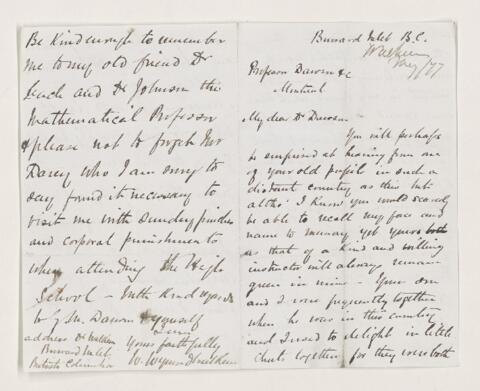 Burrard Inlet B.C.
May /77
Professor Dawson &c
Montreal
My dear Dr Dawson
You will perhaps
be surprised at hearing from one
of your old pupils in such a
distant country as this but
altho' I know you would scarcely
be able to recall my face and
name to memory yet yours both
as that of a kind and willing
instructor will always remain
green in mine - Your son
and I were frequently together
when he was in this country
and I used to delight in little
chats together for they were both
Be kind enough to remember
me to my old friend Dr
Leach and Dr Johnson the
Mathematical Professor
& please not to forget Mr
Darey who I am sorry to
say found it necessary to
visit me with sundry pinches
and corporal punishments
when attending the High
School - With kind regards
to G. M. Dawson & yourself
address Dr Welken Yours faithfully
Burrard Inlet
British Columbia